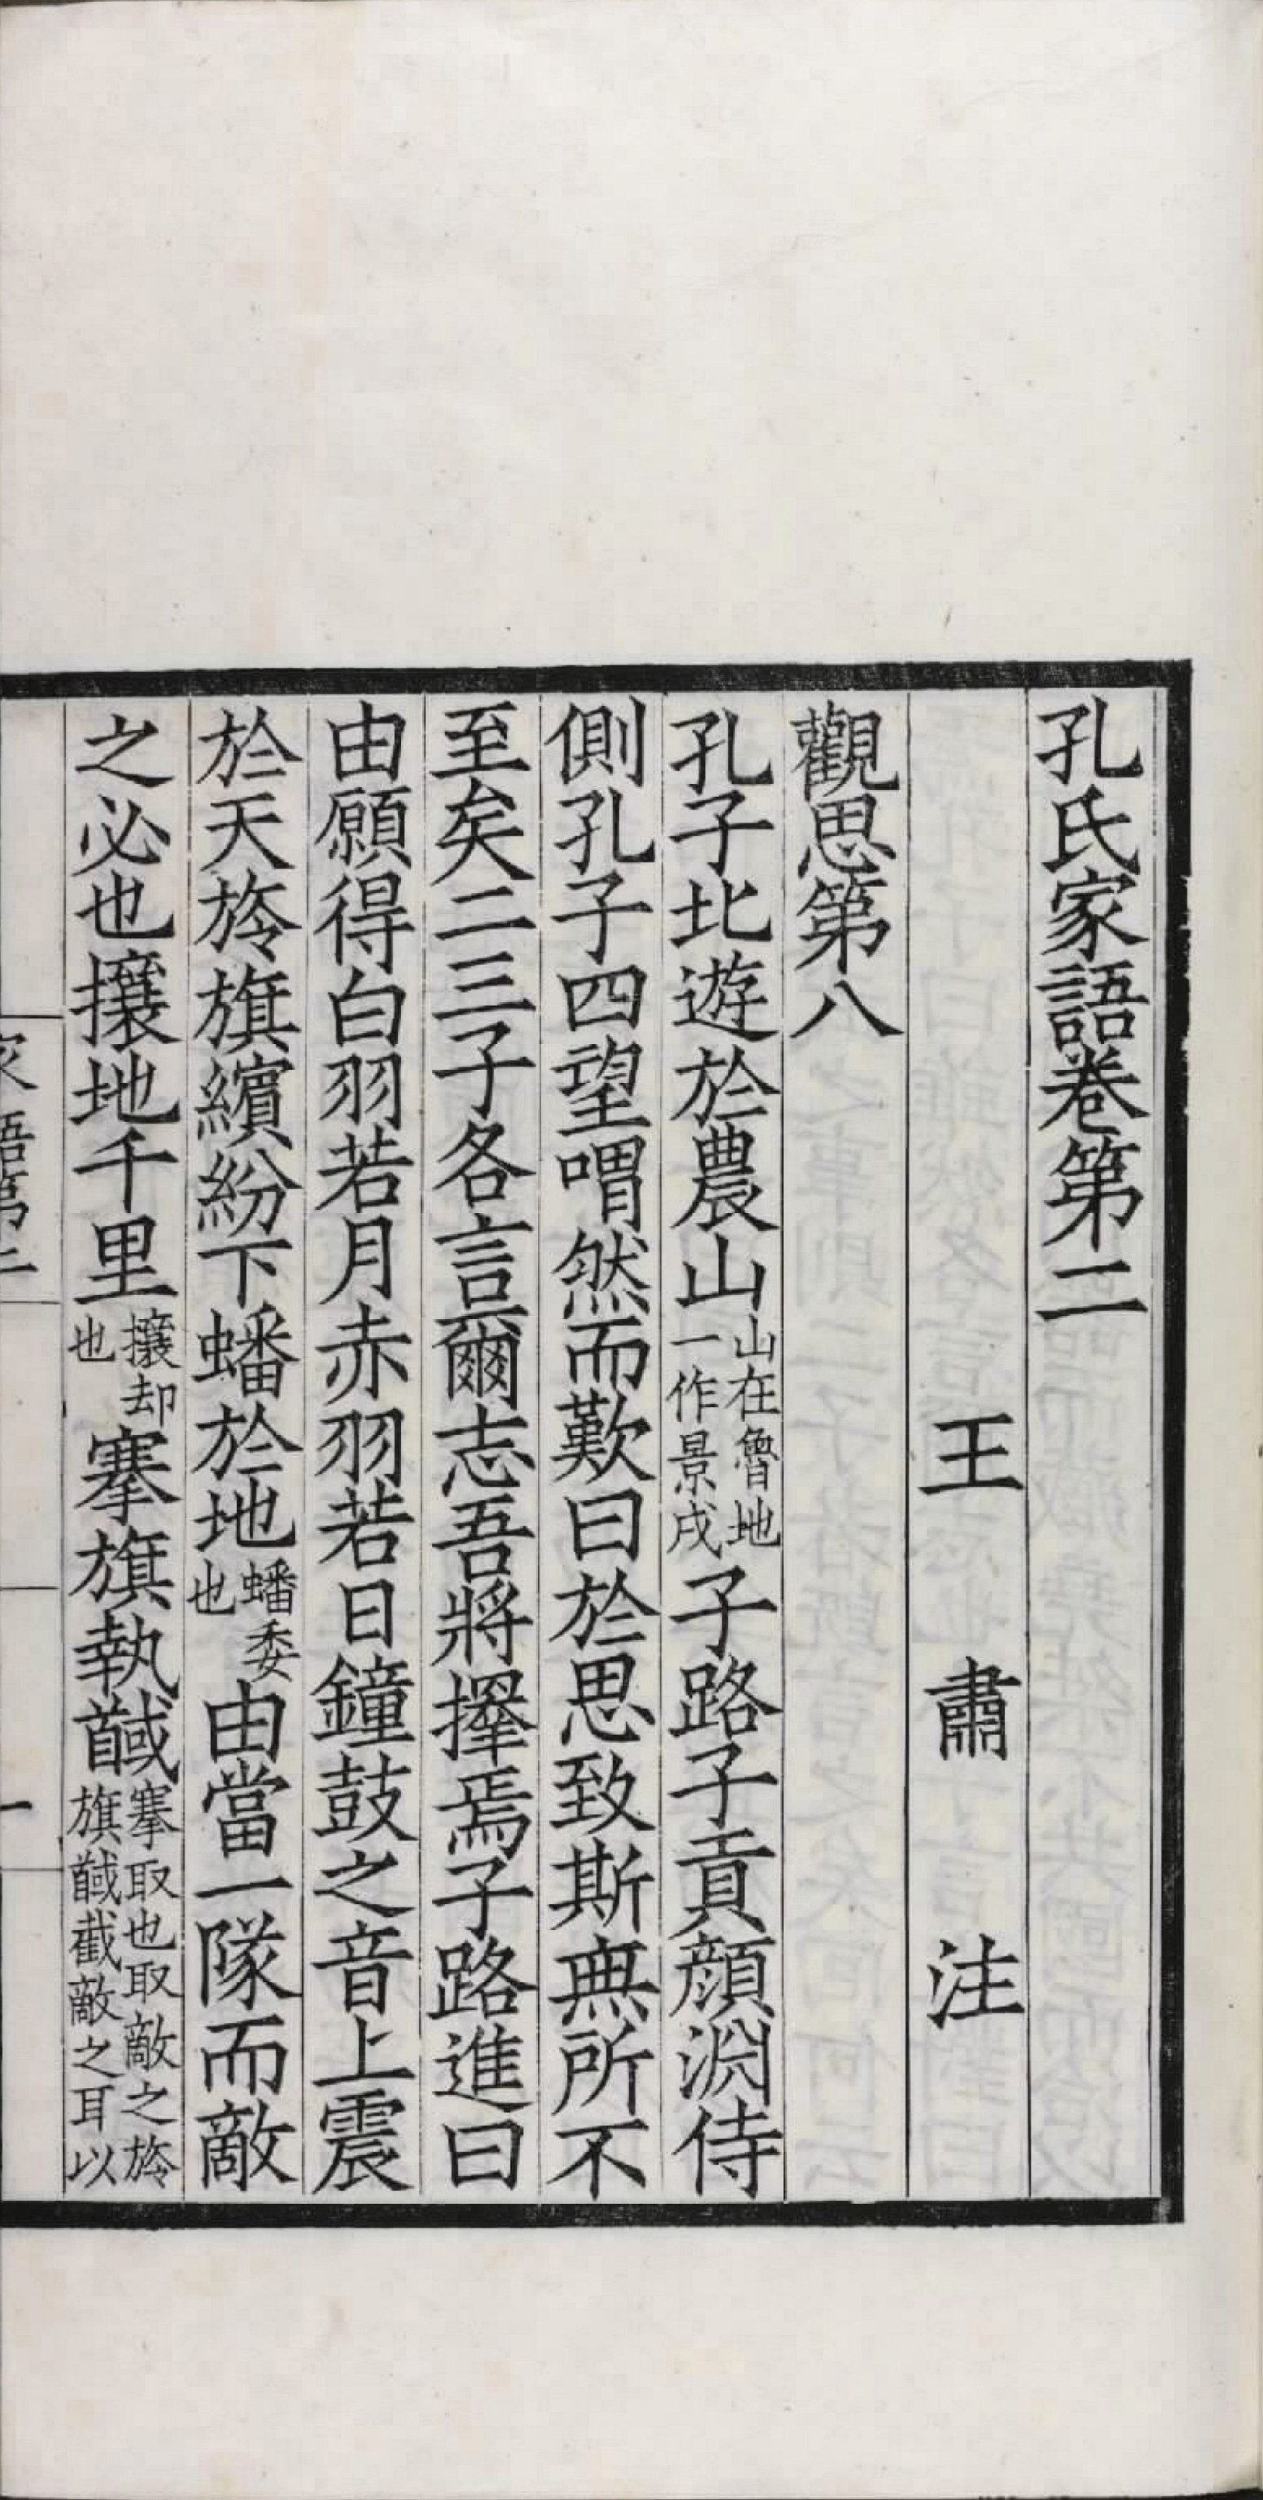 孔氏家語卷第二
王肅注
觀思第八
孔子北遊於農山山在魯地一作景戌子路子貢顏淵侍
側孔子四望喟然而歎曰於思致斯無所不
至矣二三子各言爾志吾將擇焉子路進曰
由願得白羽若月赤羽若日鐘鼓之音上震
於天旍旗繽紛下蟠於地蟠委也由當一隊而敵
之必也攘地千里攘却也搴旗執馘搴取也取敵之旍旗馘截敵之耳以
家語第二
一